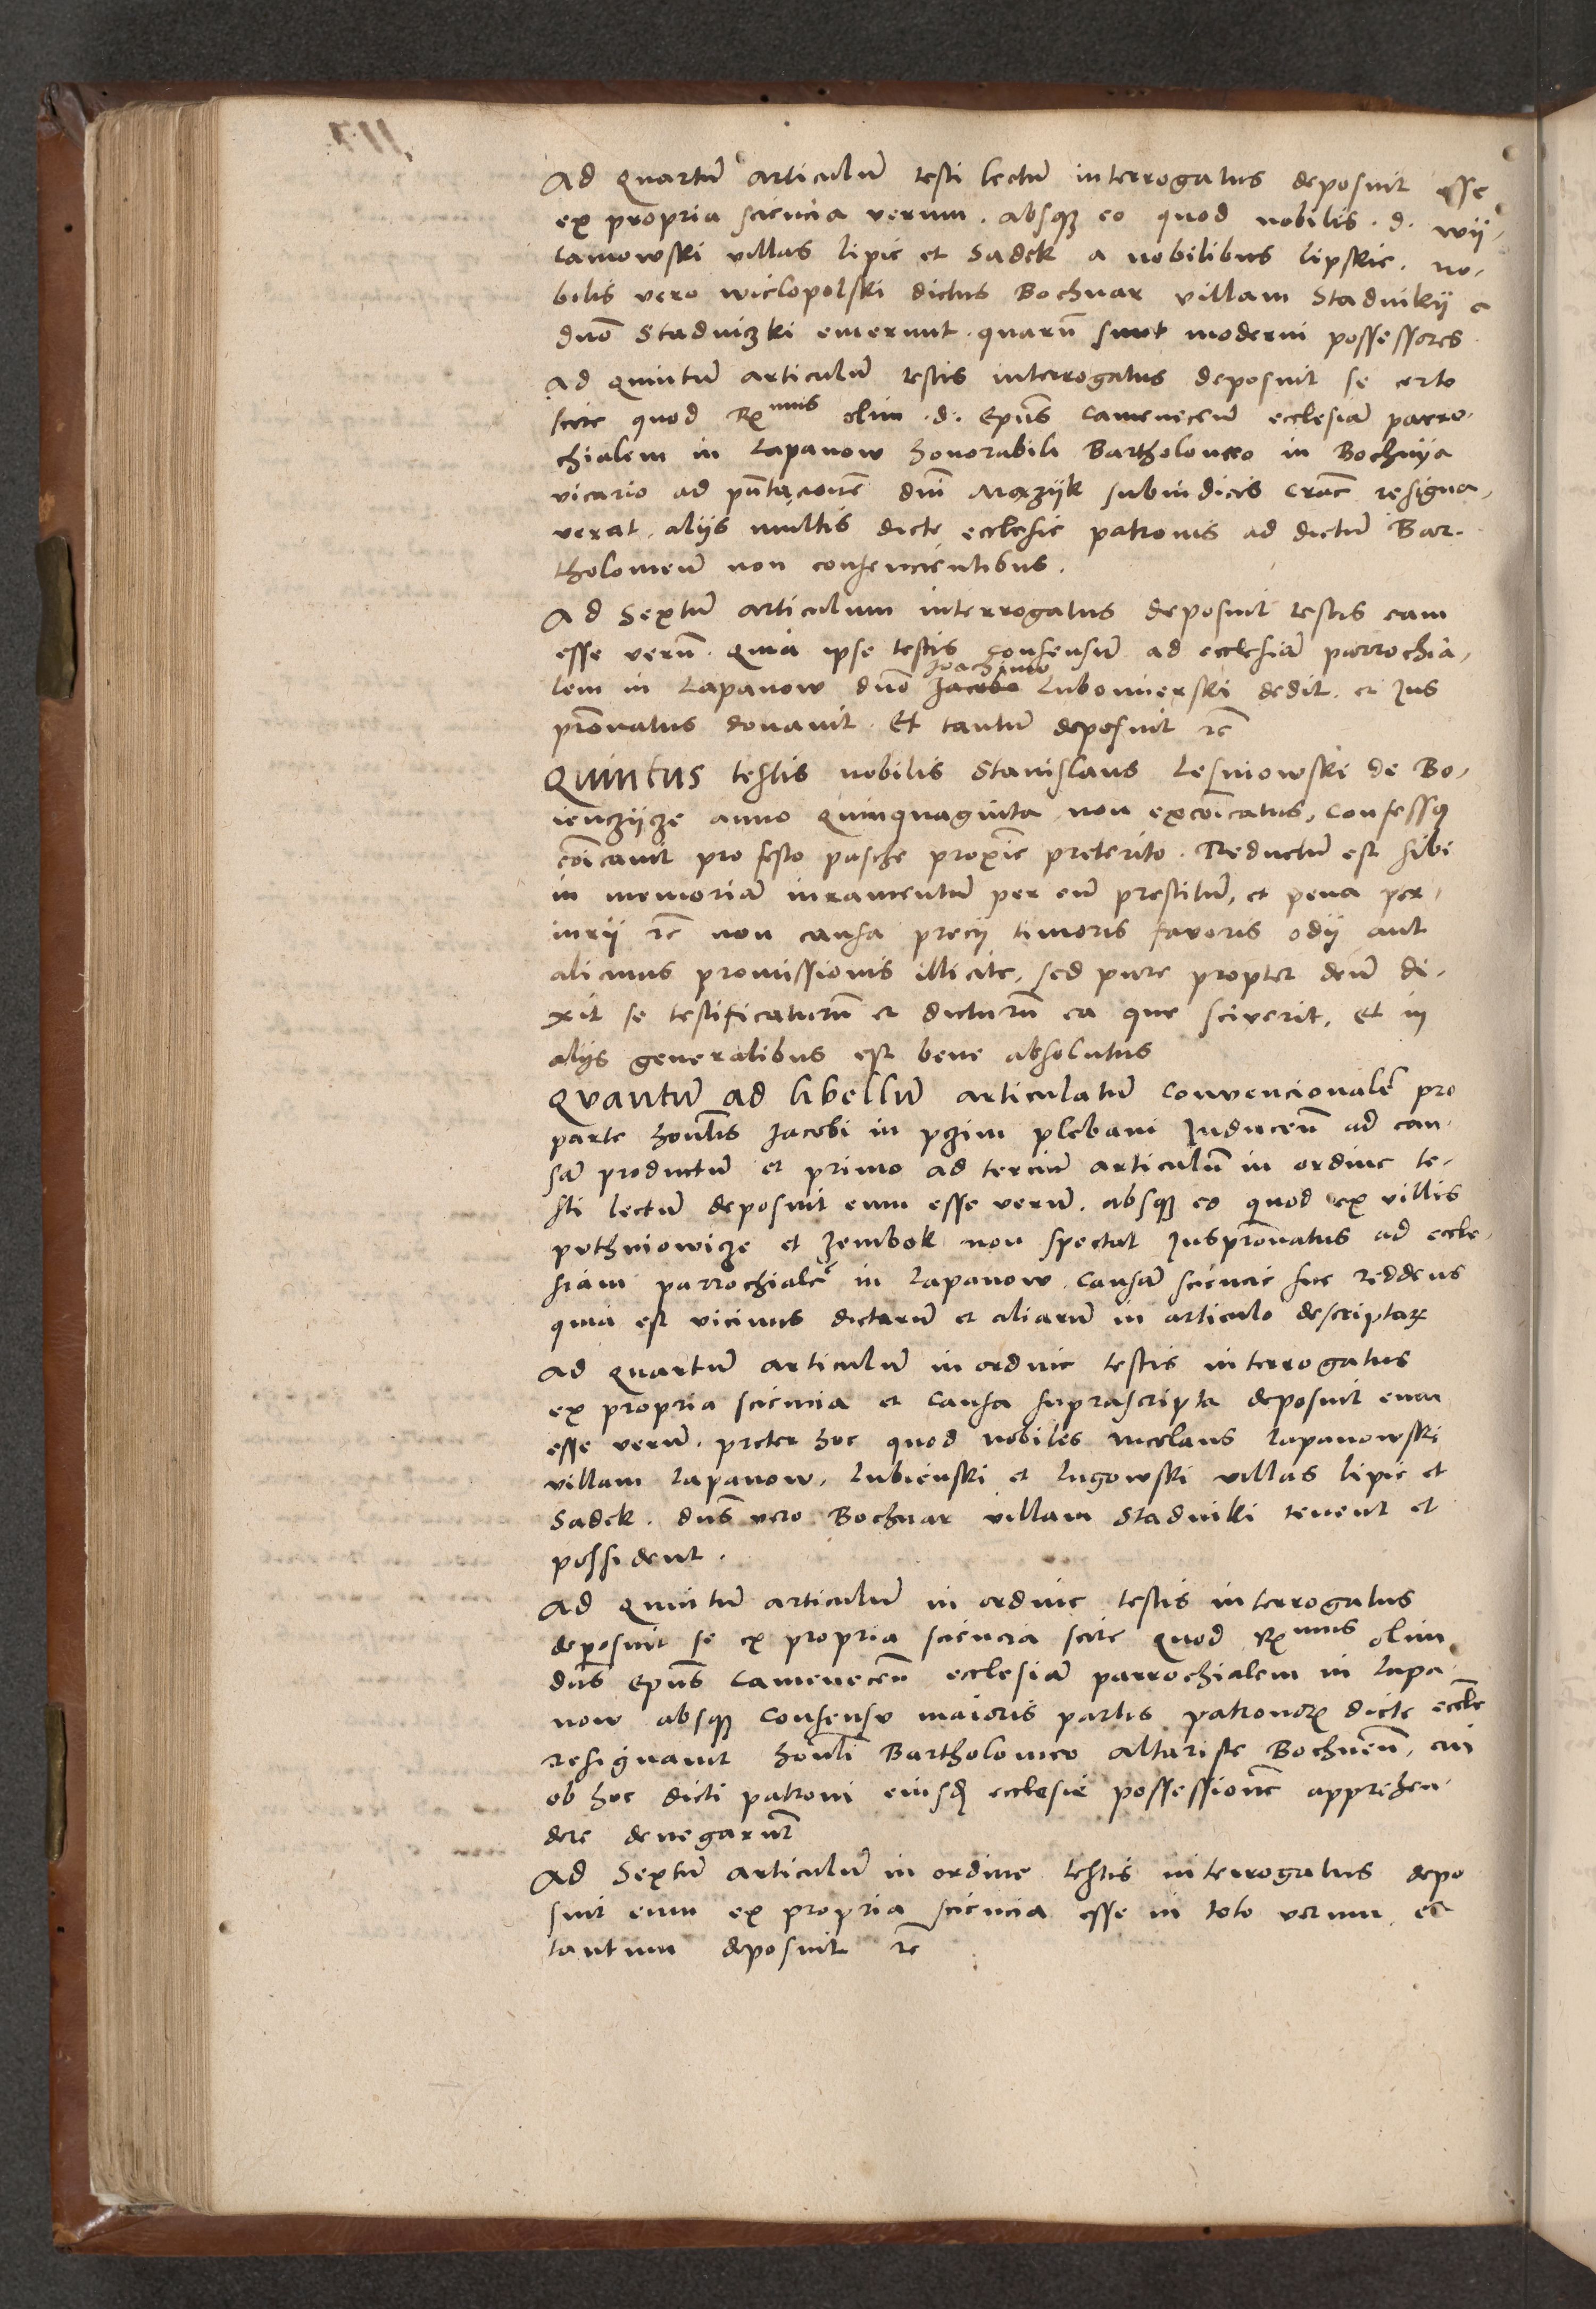 Ad quartū articulū testi lectū interrogatus deposuit esse
ex propria sciencia verum. absqꝫ eo quod nobilis. d. Wij-
camowski villas lipie et Sadek a nobilibus lipskie. no-
bilis vero wielopolski dictus Bochnar villam Stadnikij a
dn̄o Stadniczki emerunt. quarū sunt moderni possessores.
Ad quintū articulū testis interrogatus deposuit se certo
scire quod Rmus olim. d. Ep̄us Cameneceñ ecclesiā parro-
chialem in Lapanow honorabili Bartholomeo in Bochnija
vicario ad pn̄tacionē dn̄i subiudicis Crac̄ resigna-
verat. alijs multis dicte ecclesie patronis ad dictū Bar-
tholomeū non consencientibus.
Ad Sextū articulum interrogatus deposuit testis eam
esse verū. quia ipse testis consensū ad ecclesiā parrochia-
Joachimo
lem in Lapanow dn̄o Jacobo Lubomierski dedit. et Jus
pr̄onatus donavit. Et tantū deposuit ⁊c̄
Quintus testis nobilis Stanislaus Lesniowski de Bo-
ienczijcze anno quinquaginta non excōicatus, confessꝰ
cōicavit pro festo pasche proxīe preterito. Reductū est sibi
in memoriā iuramentū per eū prestitū, et pena per-
iurij ⁊c̄ non causa precij timoris favoris odij aut
alicuius promissionis illicite, sed pure propter deū di-
xit se testificaturū et dicturū ea que sciverit, Et in
alijs generalibus est bene absolutus
Quantū ad libellū articulatū convencionalē pro
parte honl̄is Jacobi in pzim plebani Inducen̄ ad cau-
sā productū et primo ad terciū articulū in ordine te-
sti lectū deposuit eum esse verū. absqꝫ eo quod ex villis
pvthniowicze et Zembok non spectat Juspr̄onatus ad eccle-
siam parrochialē in Lapanow. Causā sciencie sue reddens
quia est vicinus dictarū et aliarū in articulo descriptaꝝ
Ad quartū articulū in ordine testis interrogatus
ex propria sciencia et causa suprascripta deposuit eum
esse verū. preter hoc quod nobiles nicolaus Lapanowski
villam Lapanow, Lubienski et Lugowski villas lipie et
Sadek. dn̄s vero Bochnar villam Stadniki tenent et
possident.
Ad quintū articulū in ordine testis interrogatus
deposuit se ex propria sciencia scire quod Rmus olim
dn̄s Ep̄us Camenecen̄ ecclesiā parrochialem in Lapa-
now absqꝫ consensu maioris partis patronoꝝ dicte eccl̄e
resignavit honl̄i Bartholomeo altariste Bochnen̄, cui
ob hoc dicti patroni eiusd̄ ecclesie possessionē apprehen-
dere denegarūt
Ad Sextū articulū in ordine testis interrogatus depo
suit eum ex propria sciencia esse in toto verum et
tantum deposuit ⁊c̄